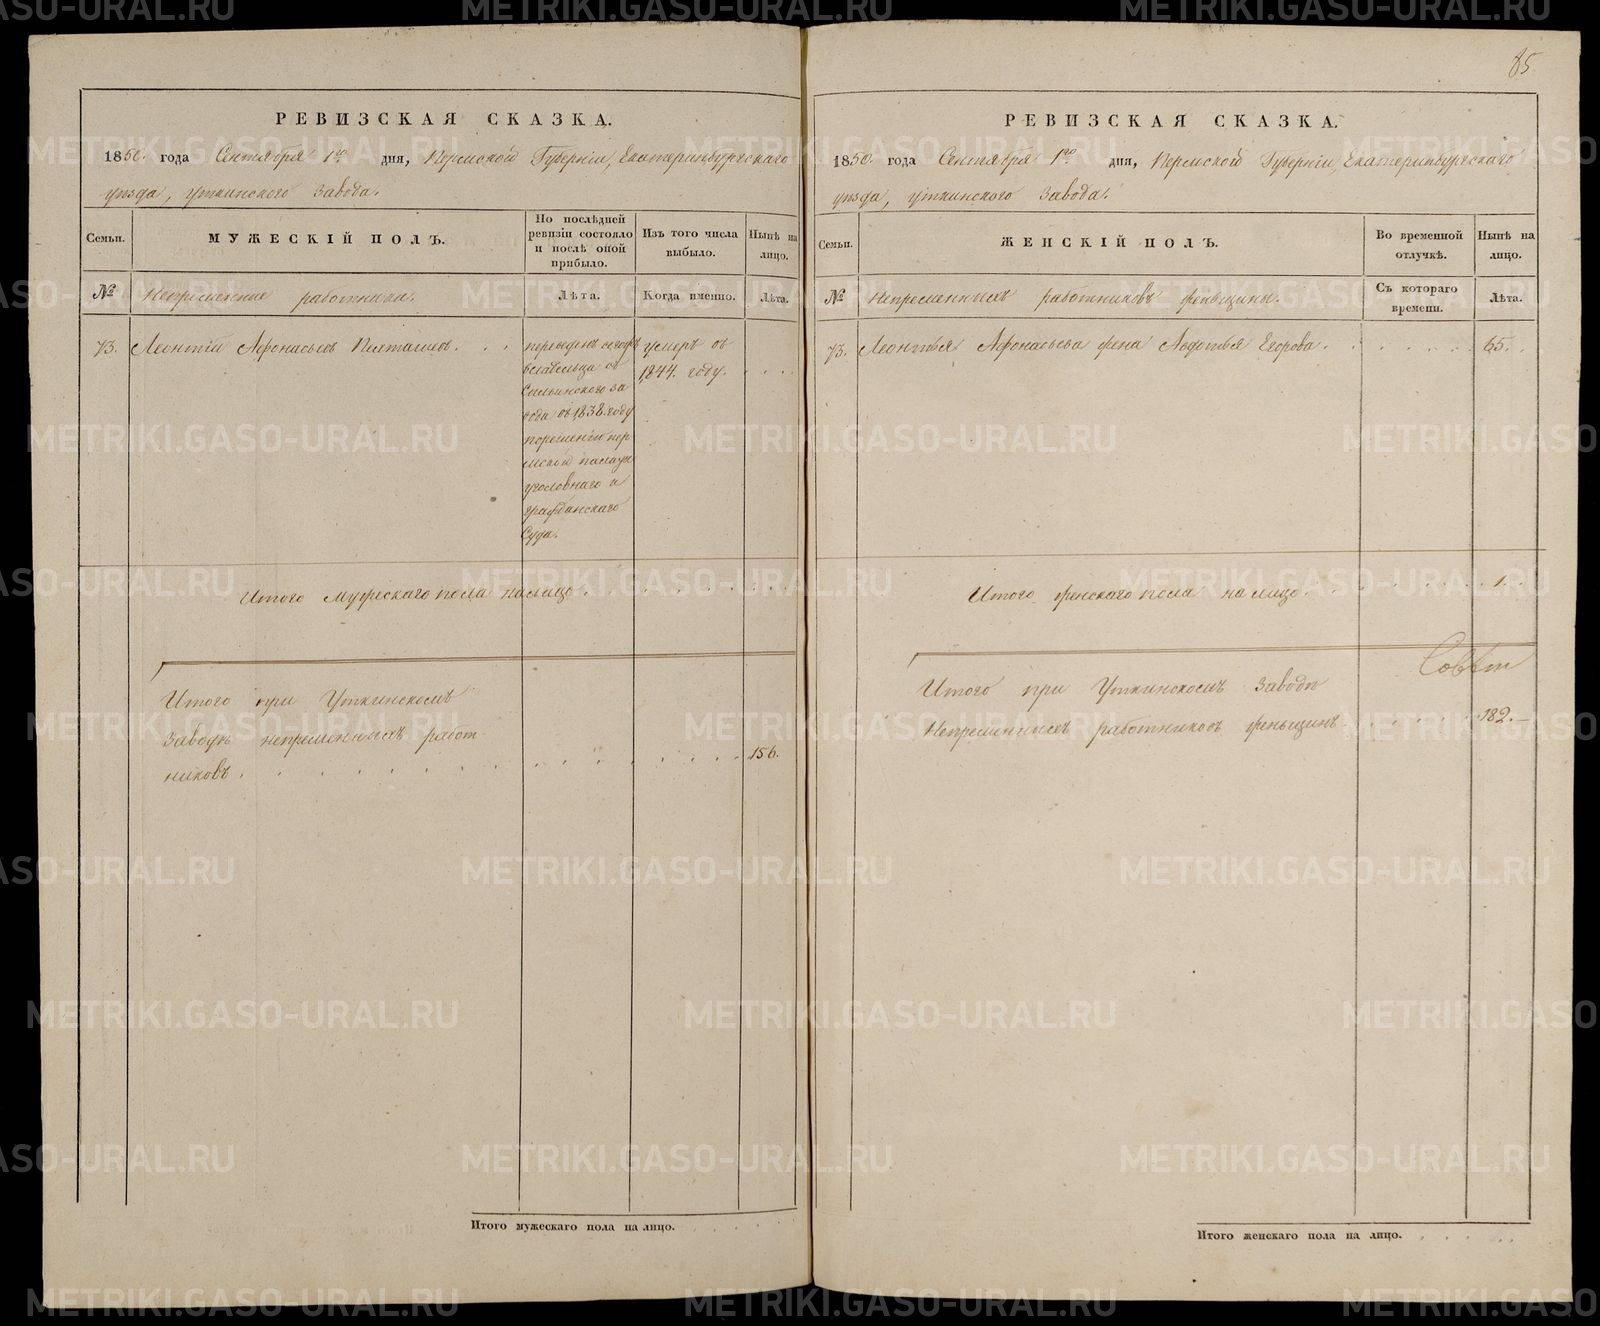 85
РЕВИЗСКАЯ СКАЗКА.
1850. года Сентября 1го дня, Пермской Губерніи, Екатеринбургскаго
уѣзда, Уткинскаго Завода.
Семьи.
МУЖЕСКІЙ ПОЛЪ.
По послѣдней
ревизіи состояло
и послѣ оной
прибыло.
Изъ того числа
выбыло.
Нынѣ на
лицо.
№
Непременные работники.
Лѣта.
Когда именно.
Лѣта.
73. Леонтій Афонасьевъ
завода въ 1838. году
по решенію Пер
мской палаты
уголовнаго и
гражданскаго
Суда.
умеръ въ
1844. году.
Итого мужескаго пола на лицо
Итого при Уткинскомъ
Заводѣ непременныхъ работ
никовъ. 156.
Итого мужескаго пола на лицо.
РЕВИЗСКАЯ СКАЗКА.
1850. года Сентября 1го дня, Пермской Губерніи, Екатеринбургскаго
уѣзда, Уткинскаго Завода.
Семьи.
ЖЕНСКІЙ ПОЛЪ.
Во временной
отлучкѣ.
Нынѣ на
лицо.
№
Непременныхъ работниковъ женьщины.
Съ котораго
времени.
Лѣта.
73. Леонтья Афонасьева жена Авдотья Егорова. 65.
Итого женскаго пола на лицо. 1.
Итого при Уткинскомъ Заводѣ
Непременныхъ работниковъ женьщинъ 182.
Итого женскаго пола на лицо.
METRIKI.GASO-URAL.RU